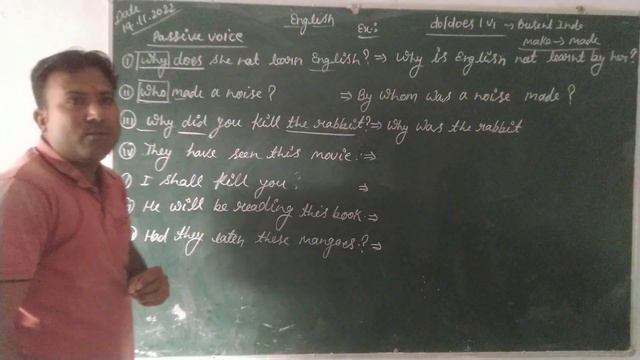 Date
19.11.2022
English
Passive voice
Ex:-
do/does | V1 → Present Inde
make → made
(i) Why does she not learn English? ⇒ Why is English not learnt by her?
(ii) Who made a noise? ⇒ By whom was a noise made?
(iii) Why did you kill the rabbit? ⇒ Why was the rabbit
(iv) They have seen this movie. ⇒
I shall kill you. ⇒
He will be reading this book. ⇒
Had they eaten these mangoes? ⇒